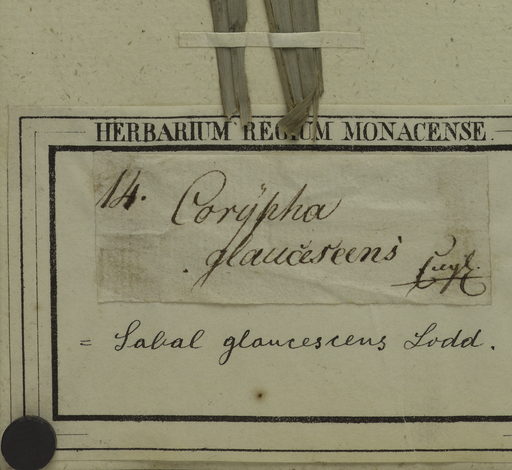 HERBARIUM REGIUM MONACENSE
14. Corÿpha
glaucescens
= Sabal glaucescens Lodd.